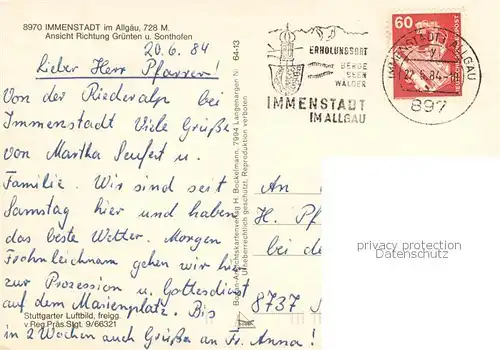 8970 IMMENSTADT im Allgäu, 728 M.
Ansicht Richtung Grünten u. Sonthofen
20.6.84
Lieber Herr Pfarrer!
Von der Riederalp bei
Immenstadt Viele Grüße
von Martha Seufert u.
Familie. Wir sind seit
Samstag hier und haben
das beste Wetter. Morgen
Frohnleichnam gehen wir hi
zur Prozession u. Gottesdienst
auf dem Marienplatz. Bis
in 2 Wochen auch Grüße an Fr. Anna!
Stuttgarter Luftbild, freigg.
v. Reg. Präs. Stgt. 9/66321
64-13
Boden-Ansichtskartenverlag H. Bockelmann, 7994 Langenargen Nr.
Urheberrechtlich geschützt. Reproduktion verboten
ERHOLUNGSORT
BERGE
SEEN
WÄLDER
IMMENSTADT
IM ALLGÄU
IMMENSTADT I ALLGÄU
22.6.84-18
897
60
DEUTSCHE BUNDESPOST
An
H. Pf
bei de
8737
privacy protection
Datenschutz